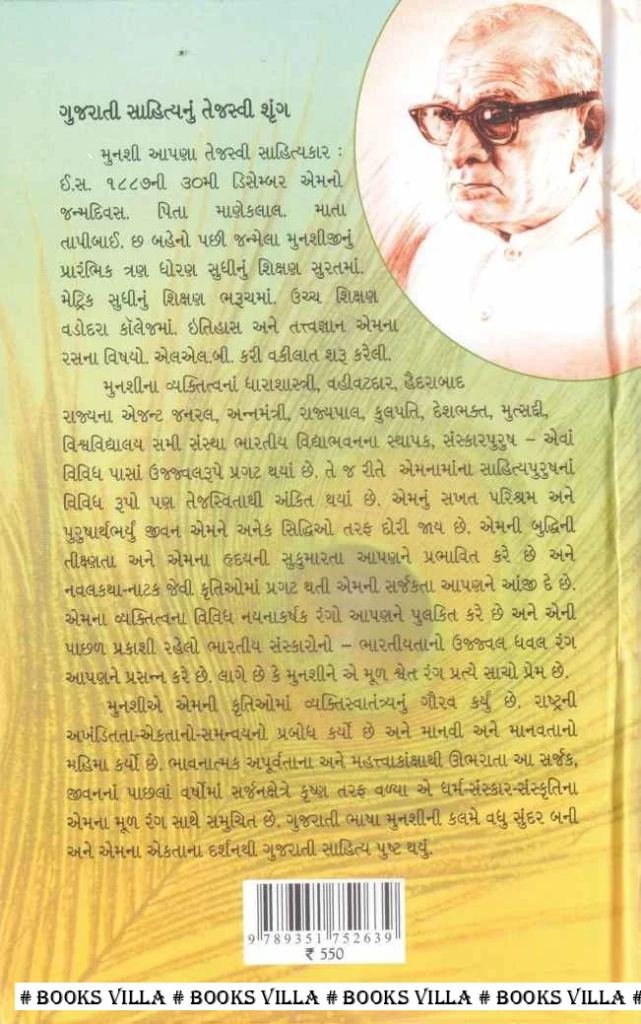 ગુજરાતી સાહિત્યનું તેજસ્વી શૃંગ
મુનશી આપણા તેજસ્વી સાહિત્યકાર :
ઈ.સ. ૧૮૮૭ની ૩૦મી ડિસેમ્બર એમનો
જન્મદિવસ. પિતા માણેકલાલ. માતા
તાપીબાઈ. છ બહેનો પછી જન્મેલા મુનશીજીનું
પ્રારંભિક ત્રણ ધોરણ સુધીનું શિક્ષણ સુરતમાં.
મેટ્રિક સુધીનું શિક્ષણ ભરૂચમાં. ઉચ્ચ શિક્ષણ
વડોદરા કૉલેજમાં. ઇતિહાસ અને તત્ત્વજ્ઞાન એમના
રસના વિષયો. એલએલ.બી. કરી વકીલાત શરૂ કરેલી.
મુનશીના વ્યક્તિત્વનાં ધારાશાસ્ત્રી, વહીવટદાર, હૈદરાબાદ
રાજ્યના એજન્ટ જનરલ, અન્નમંત્રી, રાજ્યપાલ, કુલપતિ, દેશભક્ત, મુત્સદ્દી,
વિશ્વવિદ્યાલય સમી સંસ્થા ભારતીય વિદ્યાભવનના સ્થાપક, સંસ્કારપુરુષ – એવાં
વિવિધ પાસાં ઉજ્જ્વલરૂપે પ્રગટ થયાં છે. તે જ રીતે એમનામાંના સાહિત્યપુરુષનાં
વિવિધ રૂપો પણ તેજસ્વિતાથી અંકિત થયાં છે. એમનું સખત પરિશ્રમ અને
પુરુષાર્થભર્યું જીવન એમને અનેક સિદ્ધિઓ તરફ દોરી જાય છે. એમની બુદ્ધિની
તીક્ષ્ણતા અને એમના હૃદયની સુકુમારતા આપણને પ્રભાવિત કરે છે અને
નવલકથા-નાટક જેવી કૃતિઓમાં પ્રગટ થતી એમની સર્જકતા આપણને આંજી દે છે.
એમના વ્યક્તિત્વના વિવિધ નયનાકર્ષક રંગો આપણને પુલકિત કરે છે અને એની
પાછળ પ્રકાશી રહેલો ભારતીય સંસ્કારોનો – ભારતીયતાનો ઉજ્જ્વલ ધવલ રંગ
આપણને પ્રસન્ન કરે છે. લાગે છે કે મુનશીને એ મૂળ શ્વેત રંગ પ્રત્યે સાચો પ્રેમ છે.
મુનશીએ એમની કૃતિઓમાં વ્યક્તિસ્વાતંત્ર્યનું ગૌરવ કર્યું છે. રાષ્ટ્રની
અખંડિતતા-એકતાનો-સમન્વયનો પ્રબોધ કર્યો છે અને માનવી અને માનવતાનો
મહિમા કર્યો છે. ભાવનાત્મક અપૂર્વતાના અને મહત્ત્વાકાંક્ષાથી ઊભરાતા આ સર્જક,
જીવનનાં પાછલાં વર્ષોમાં સર્જનક્ષેત્રે કૃષ્ણ તરફ વળ્યા એ ધર્મ-સંસ્કાર-સંસ્કૃતિના
એમના મૂળ રંગ સાથે સમુચિત છે. ગુજરાતી ભાષા મુનશીની કલમે વધુ સુંદર બની
અને એમના એકતાના દર્શનથી ગુજરાતી સાહિત્ય પુષ્ટ થયું.
9 789351 752639
₹ 550
# BOOKS VILLA # BOOKS VILLA # BOOKS VILLA # BOOKS VILLA #